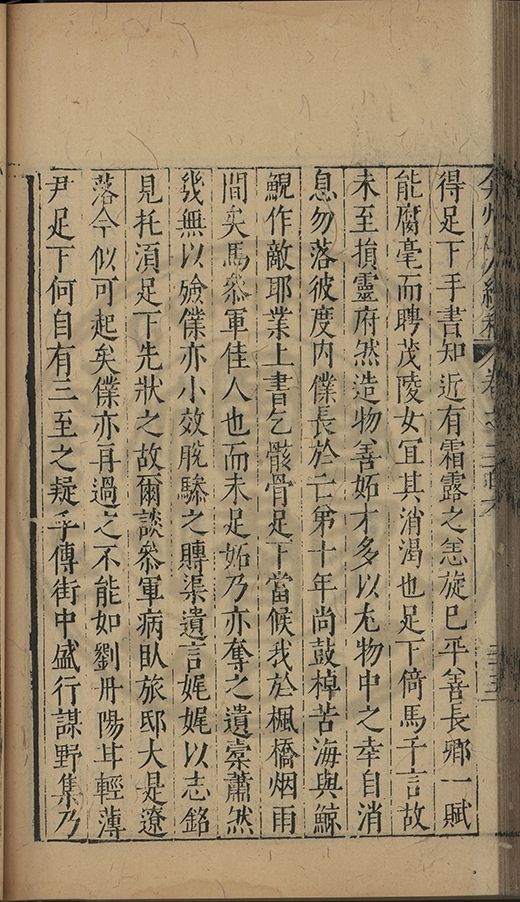 弇州山人續稿 卷之二百六
得足下手書知近有霜露之恙旋已平善長卿一賦
能腐毫而聘茂陵女冝其消渴也足下倚馬子言故
未至損靈府然造物善妬才多以尤物中之幸自消
息勿落彼度內僕長於亡弟十年尚鼓棹苦海與鯨
鯢作敵耶業上書乞骸骨足下當候我於楓橋烟雨
間矣馬叅軍佳人也而未足妬乃亦奪之遺橐蕭然
幾無以殮僕亦小效脫驂之賻渠遺言娓娓以志銘
見托湏足下先狀之故爾談叅軍病臥旅邸大是遼
落今似可起矣僕亦再過之不能如劉丹陽耳輕薄
尹足下何自有三至之疑乎傳街中盛行謀野集乃